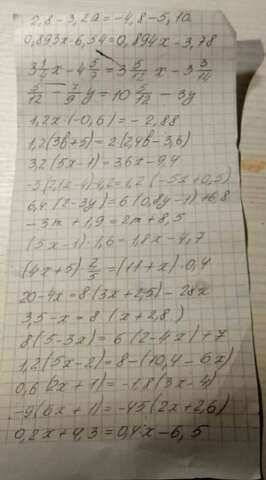 2,8-3,2a=-4,8-5,1a
0,893x-6,54=0,894x-3,78
3 1/4 x - 4 5/7 = 3 5/12 x - 3 3/14
5/12 - 7/9 y = 10 5/12 - 3y
1,2x·(-0,6) = -2,88
1,2(3b+5)=2(2,4b-3,6)
3,2(5x-1)=3,6x-9,4
6,4·(2-3y)=6(0,8y-1)+6,8
-3m+1,9=2m+8,5
(5x-1)·1,6=1,8x-4,7
(4x+5)·2/5=(11+x)·0,4
20-4x=8(3x+2,5)-28x
3,5-x=8(x+2,8)
8(5-3x)=6(2-4x)+7
1,2(5x-2)=8-(10,4-6x)
0,6(2x+1)=-1,8(3x-4)
-9(6x+1)=-45(2x+2,6)
0,2x+4,3=0,4x-6,5